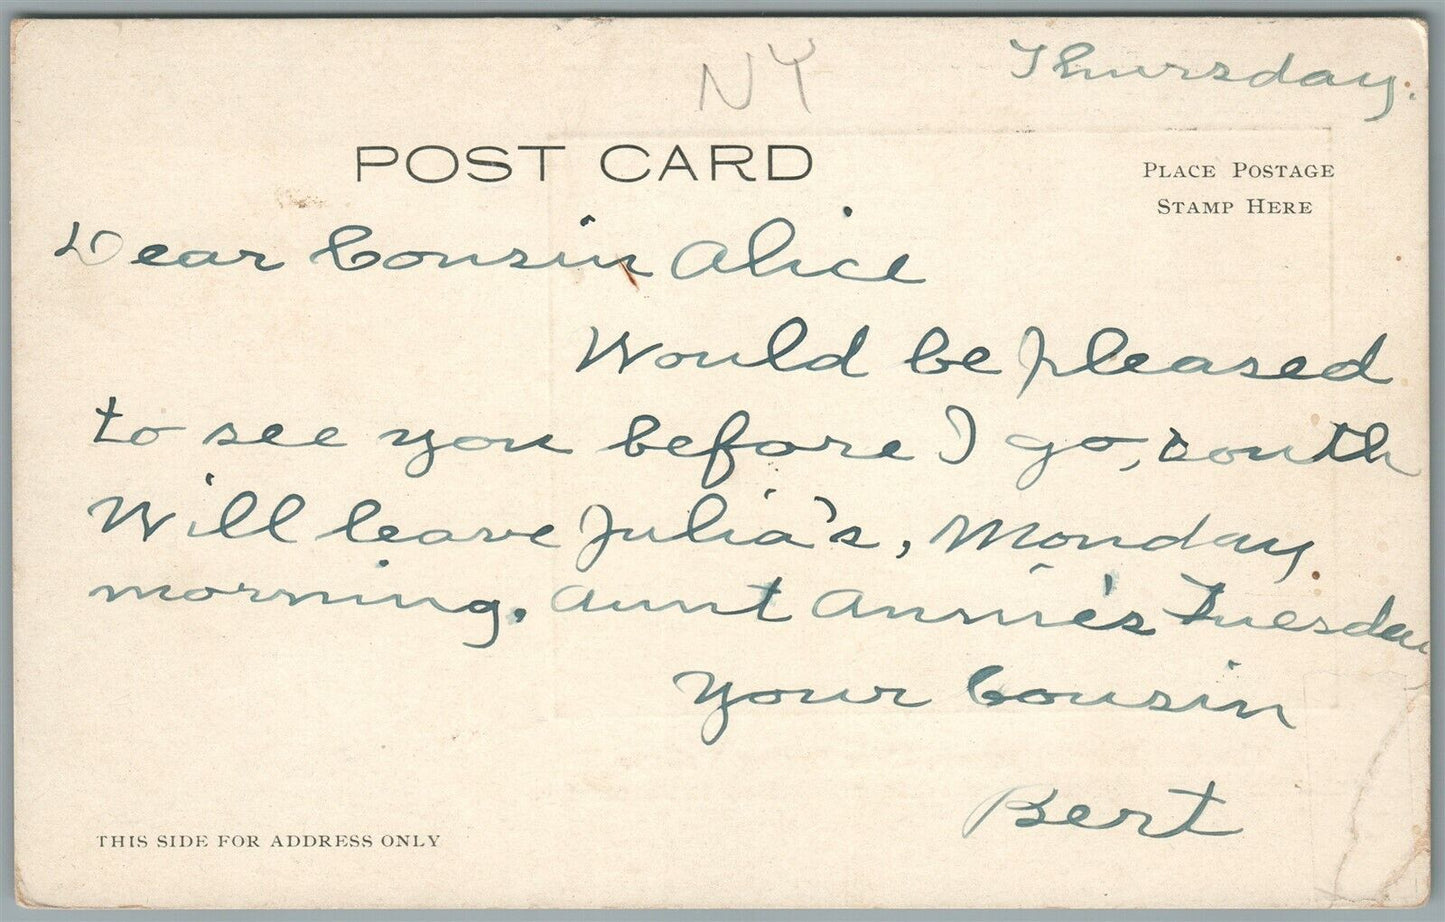 NY
Thursday.
POST CARD
PLACE POSTAGE
STAMP HERE
Dear Cousin Alice
Would be pleased
to see you before I go, south
Will leave Julia's, Monday
morning. Aunt Annie's Tuesday
Your Cousin
Bert
THIS SIDE FOR ADDRESS ONLY